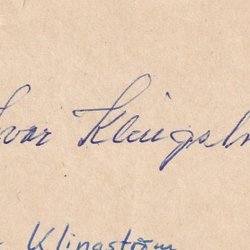 Ivar Klingst
Klingström